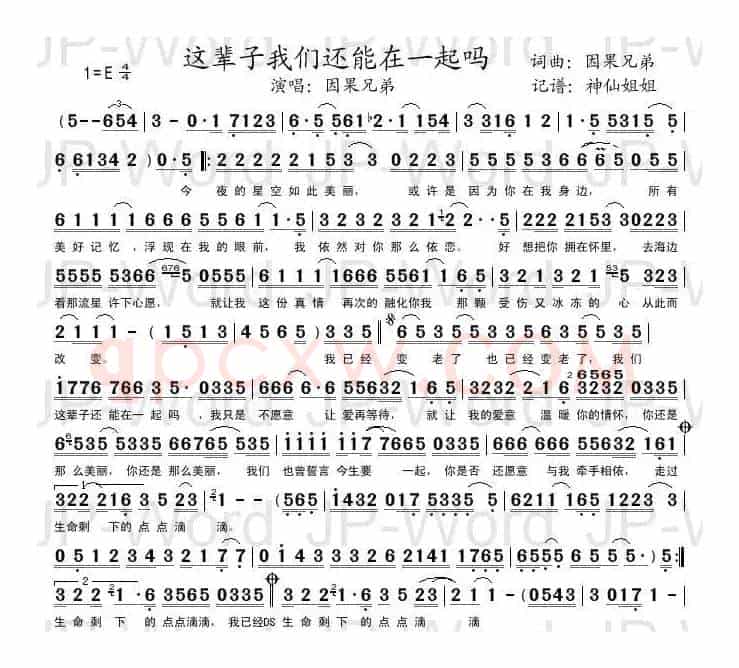 这辈子我们还能在一起吗
1=E 4/4
演唱：因果兄弟
词曲：因果兄弟
记谱：神仙姐姐
(5--654|3-0·17123|6·5561♭2·1154|3331612|1·553155|
661342)0·5‖:22222153 3 0223|5555366665055|
今 夜的星空如此美丽， 或许是 因为你在我身边， 所有
6111166655611·5|3232321622··05|222215330223|
美好记忆，浮现在我的眼前， 我 依然对你那么依恋。 好 想把你 拥在怀里， 去海边
55555366 676 50555|611116665561165|3213213 53 5323|
看那流星 许下心愿， 就让我 这份真情 再次的 融化你我 那颗 受伤又冰冻的 心 从此而
2111-(1513|3044345)335|6535535635535|
改 变。 我已经 变 老了 也已经变老了，我们
17767663 5·0335|6666·655632165|32232216 26565 32320335|
这辈子还 能在一起吗 ，我只是 不愿意 让 爱再等待， 就让 我的爱意 温暖你的情怀，你还是
66535533566765535|1111117766503 35|66666655632161|
那么美丽，你还是 那么美丽， 我们 也曾誓言 今生要 一起，你是否 还愿意 与我 牵手相依， 走过
1
322216 3523|21--(565|143201753355|62111651223 3|
生命剩 下的 点点 滴滴。
0512343 2177|014333262141 1765|65556·5)5:‖
2
3 22 21·6 3565 0335‖322·21·6 3523|21--(0543|3013-)‖
生命剩 下 的 点点滴滴，我已经DS 生命剩 下的 点点滴 滴
JP-Word JP-Word JP-Word
qpcxw.com